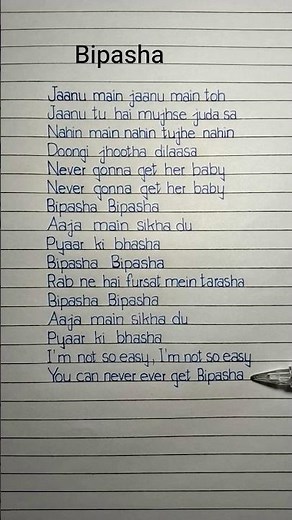 Bipasha
Jaanu main jaanu main toh
Jaanu tu hai mujhse juda sa
Nahin main nahin tujhe nahin
Doongi jhootha dilaasa
Never gonna get her baby
Never gonna get her baby
Bipasha Bipasha
Aaja main sikha du
Pyaar ki bhasha
Bipasha Bipasha
Rab ne hai fursat mein tarasha
Bipasha Bipasha
Aaja main sikha du
Pyaar ki bhasha
I'm not so easy, I'm not so easy
You can never ever get Bipasha